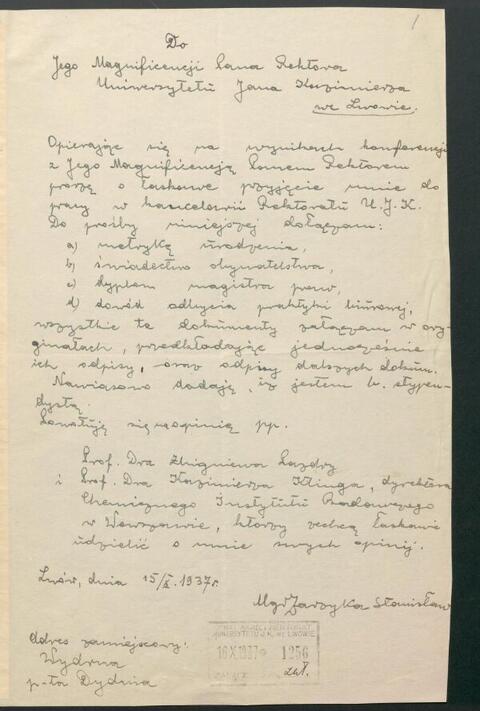 1
Do
Jego Magnificencji Pana Rektora
Uniwersytetu Jana Kazimierza
we Lwowie.
Opierając się na wynikach konferencji
z Jego Magnificencją Panem Rektorem
proszę o łaskawe przyjęcie mnie do
pracy w kancelarii Rektoratu U.J.K.
Do prośby niniejszej dołączam:
a) metrykę urodzenia,
b) świadectwo obywatelstwa,
c) dyplom magistra praw,
d) dowód odbycia praktyki biurowej,
wszystkie te dokumenty załączam w ory-
ginałach, przedkładając jednocześnie
ich odpisy, oraz odpisy dalszych dokum.
Nawiasowo dodaję, iż jestem b. stypen-
dystą.
Powołuję się na opinię pp.
Prof. Dra Zbigniewa Pazdry
i Prof. Dra Kazimierza Klinga, dyrektora
Chemicznego Instytutu Badawczego
w Warszawie, którzy zechcą łaskawie
udzielić o mnie swych opinij.
Lwów, dnia 15/X. 1937 r.
Mgr Jarzyka Stanisław
UNIWERSYTETU J.K. WE LWOWIE
16.X.1937
1256
zał.
Adres zamiejscowy:
Wydrna
p-ta Dydnia